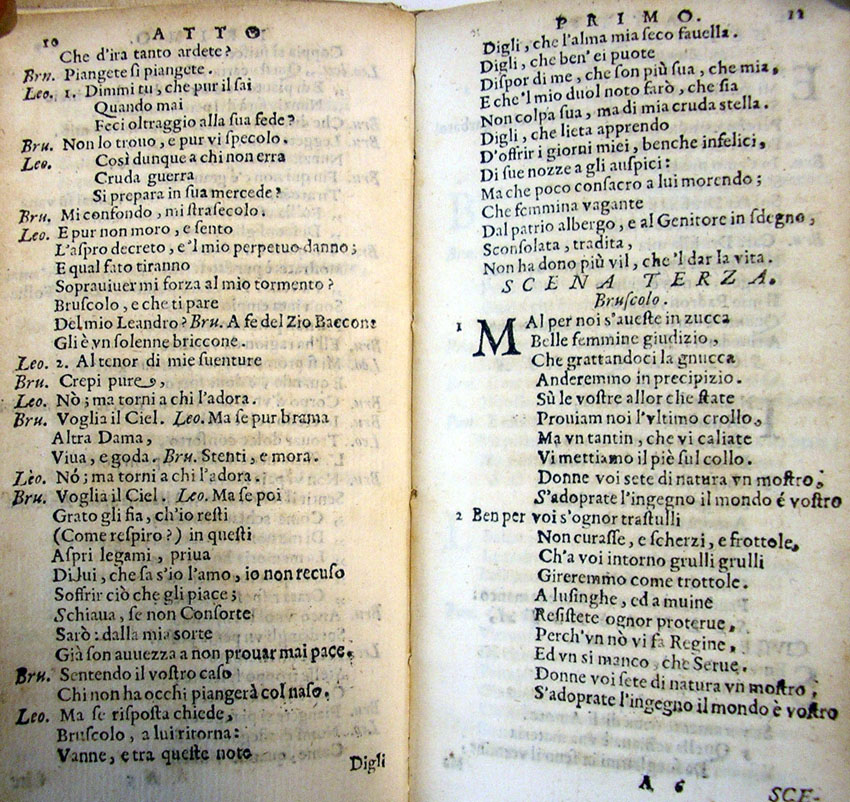 10 ATTO
Che d'ira tanto ardete?
Bru. Piangete si piangete.
Leo. 1. Dimmi tu, che pur il sai
Quando mai
Feci oltraggio alla sua fede?
Bru. Non lo trovo, e pur vi specolo.
Leo. Così dunque a chi non erra
Cruda guerra
Si prepara in sua mercede?
Bru. Mi confondo, mi strasecolo.
Leo. E pur non moro, e sento
L'aspro decreto, e'l mio perpetuo danno;
E qual fato tiranno
Soprauiuer mi forza al mio tormento?
Bruscolo, e che ti pare
Del mio Leandro? Bru. A fe del Zio Baccone
Gli è vn solenne briccone.
Leo. 2. Al tenor di mie suenture
Bru. Crepi pure,
Leo. Nò; ma torni a chi l'adora.
Bru. Voglia il Ciel. Leo. Ma se pur brama
Altra Dama,
Viua, e goda. Bru. Stenti, e mora.
Leo. Nó; ma torni a chi l'adora.
Bru. Voglia il Ciel. Leo. Ma se poi
Grato gli fia, ch'io resti
(Come respiro?) in questi
Aspri legami, priua
Di lui, che sa s'io l'amo, io non recuso
Soffrir ciò che gli piace;
Schiaua, se non Consorte
Sarò: dalla mia sorte
Già son auuezza a non prouar mai pace.
Bru. Sentendo il vostro caso
Chi non ha occhi piangerà col naso.
Leo. Ma se risposta chiede,
Bruscolo, a lui ritorna:
Vanne, e tra queste note
Digli
PRIMO. 11
Digli, che l'alma mia seco fauella.
Digli, che ben' ei puote
Dispor di me, che son più sua, che mia,
E che'l mio duol noto farò, che sia
Non colpa sua, ma di mia cruda stella.
Digli, che lieta apprendo
D'offrir i giorni miei, benche infelici,
Di sue nozze a gli auspici:
Ma che poco consacro a lui morendo;
Che femmina vagante
Dal patrio albergo, e al Genitore in sdegno,
Sconsolata, tradita,
Non ha dono più vil, che'l dar la vita.
SCENA TERZA.
Bruscolo.
1 MAl per noi s'aueste in zucca
Belle femmine giudizio,
Che grattandoci la gnucca
Anderemmo in precipizio.
Sù le vostre allor che state
Prouiam noi l'vltimo crollo,
Ma vn tantin, che vi caliate
Vi mettiamo il piè sul collo.
Donne voi sete di natura vn mostro;
S'adoprate l'ingegno il mondo é vostro
2 Ben per voi s'ognor trastulli
Non curasse, e scherzi, e frottole,
Ch'a voi intorno grulli grulli
Gireremmo come trottole.
A lusinghe, ed a muine
Resistete ognor proterue,
Perch'vn nò vi fa Regine,
Ed vn si manco, che Serue.
Donne voi sete di natura vn mostro;
S'adoprate l'ingegno il mondo è vostro
A 6
SCE-